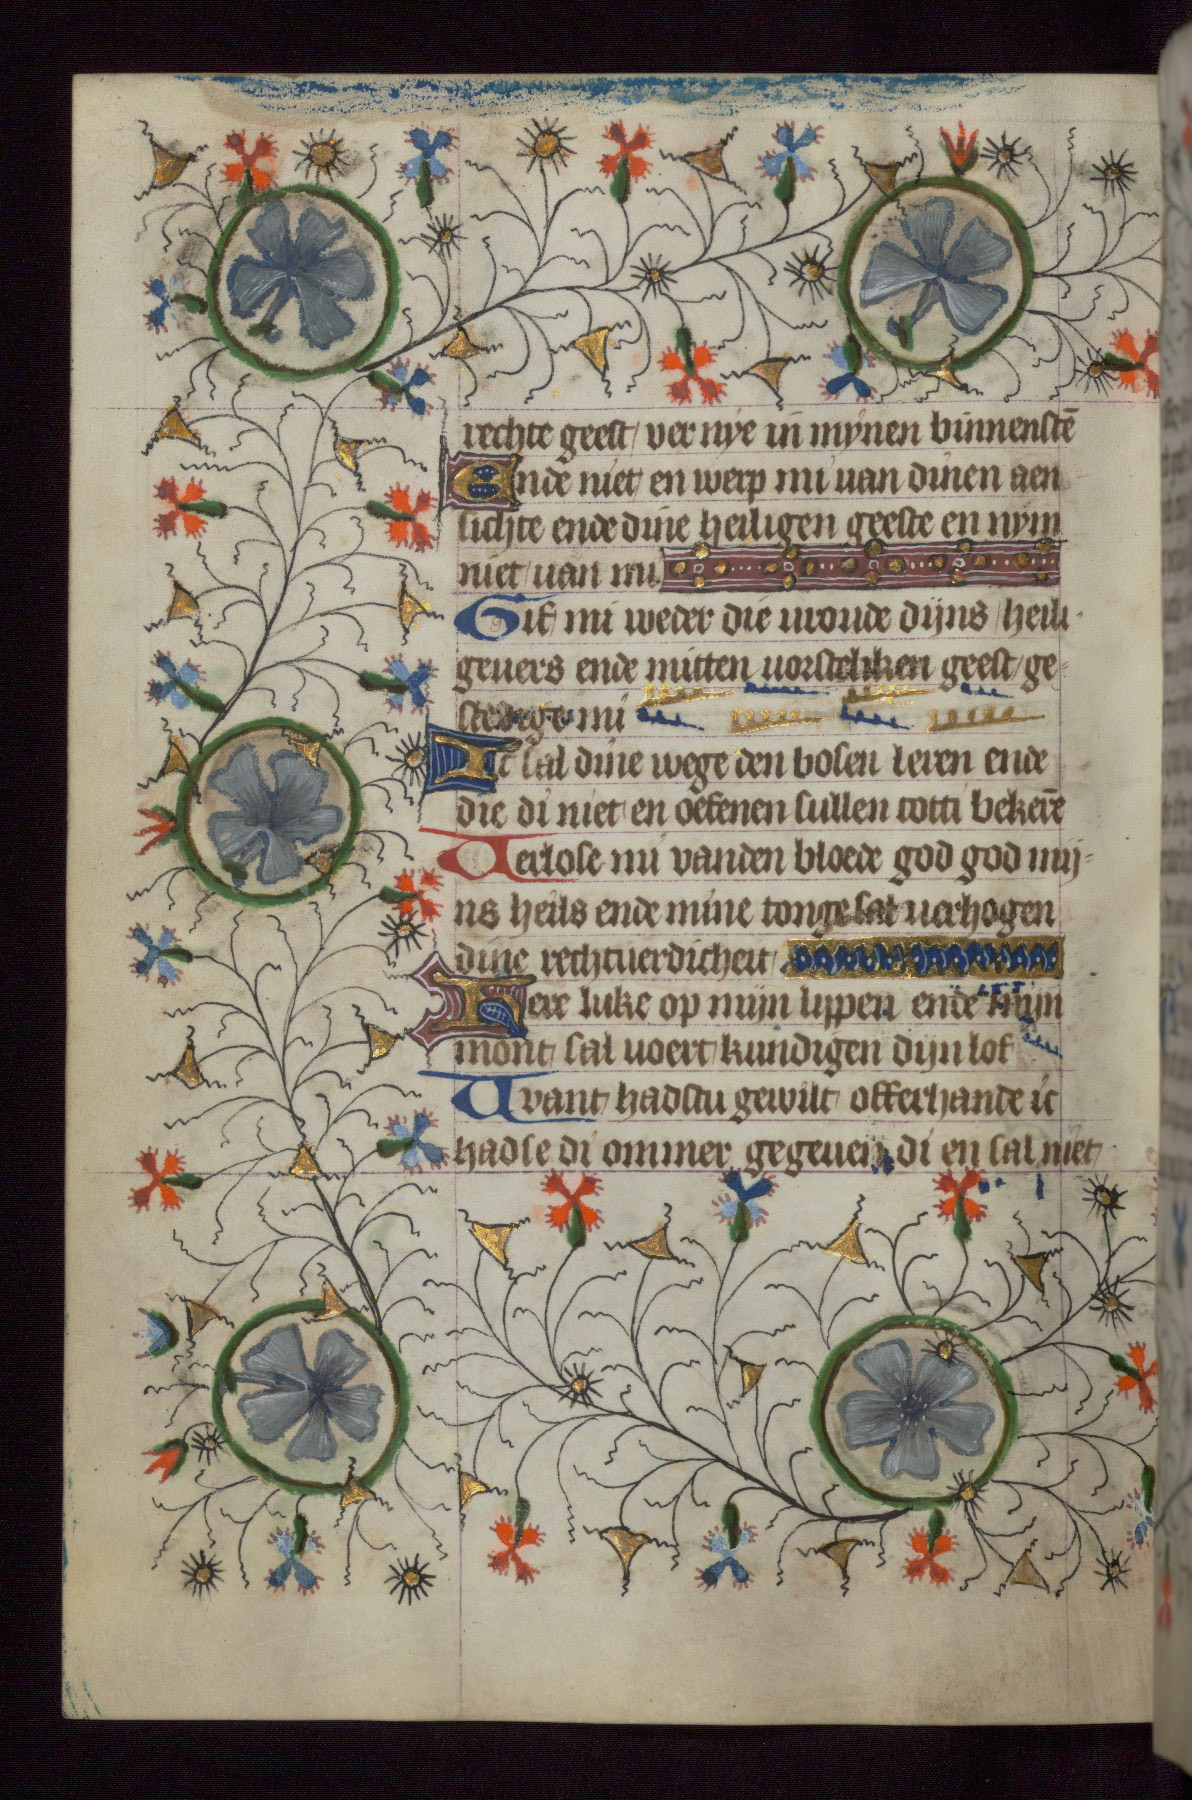 rechte geest/ ver nye in mynen binnenstē
Ende niet en werp mi uan dinen aen
sichte ende dine heiligen geeste en nym
niet uan mi
Gif mi weder die uroude dijns heili
geuers ende mitten uorsteliken geest/ ge-
stedege mi
Ic sal dine wege den bosen leren ende
die di niet en oefenen sullen totti bekerē
Uerlose mi vanden bloede god god mij-
ns heils ende mine tonge sal uerhogen
dine rechtuerdicheit
Here luke op mijn lyppen ende mijn
mont sal uoert kundigen dijn lof
Want hadstu gewilt offerhande ic
hadse di ommer gegeuen di en sal niet